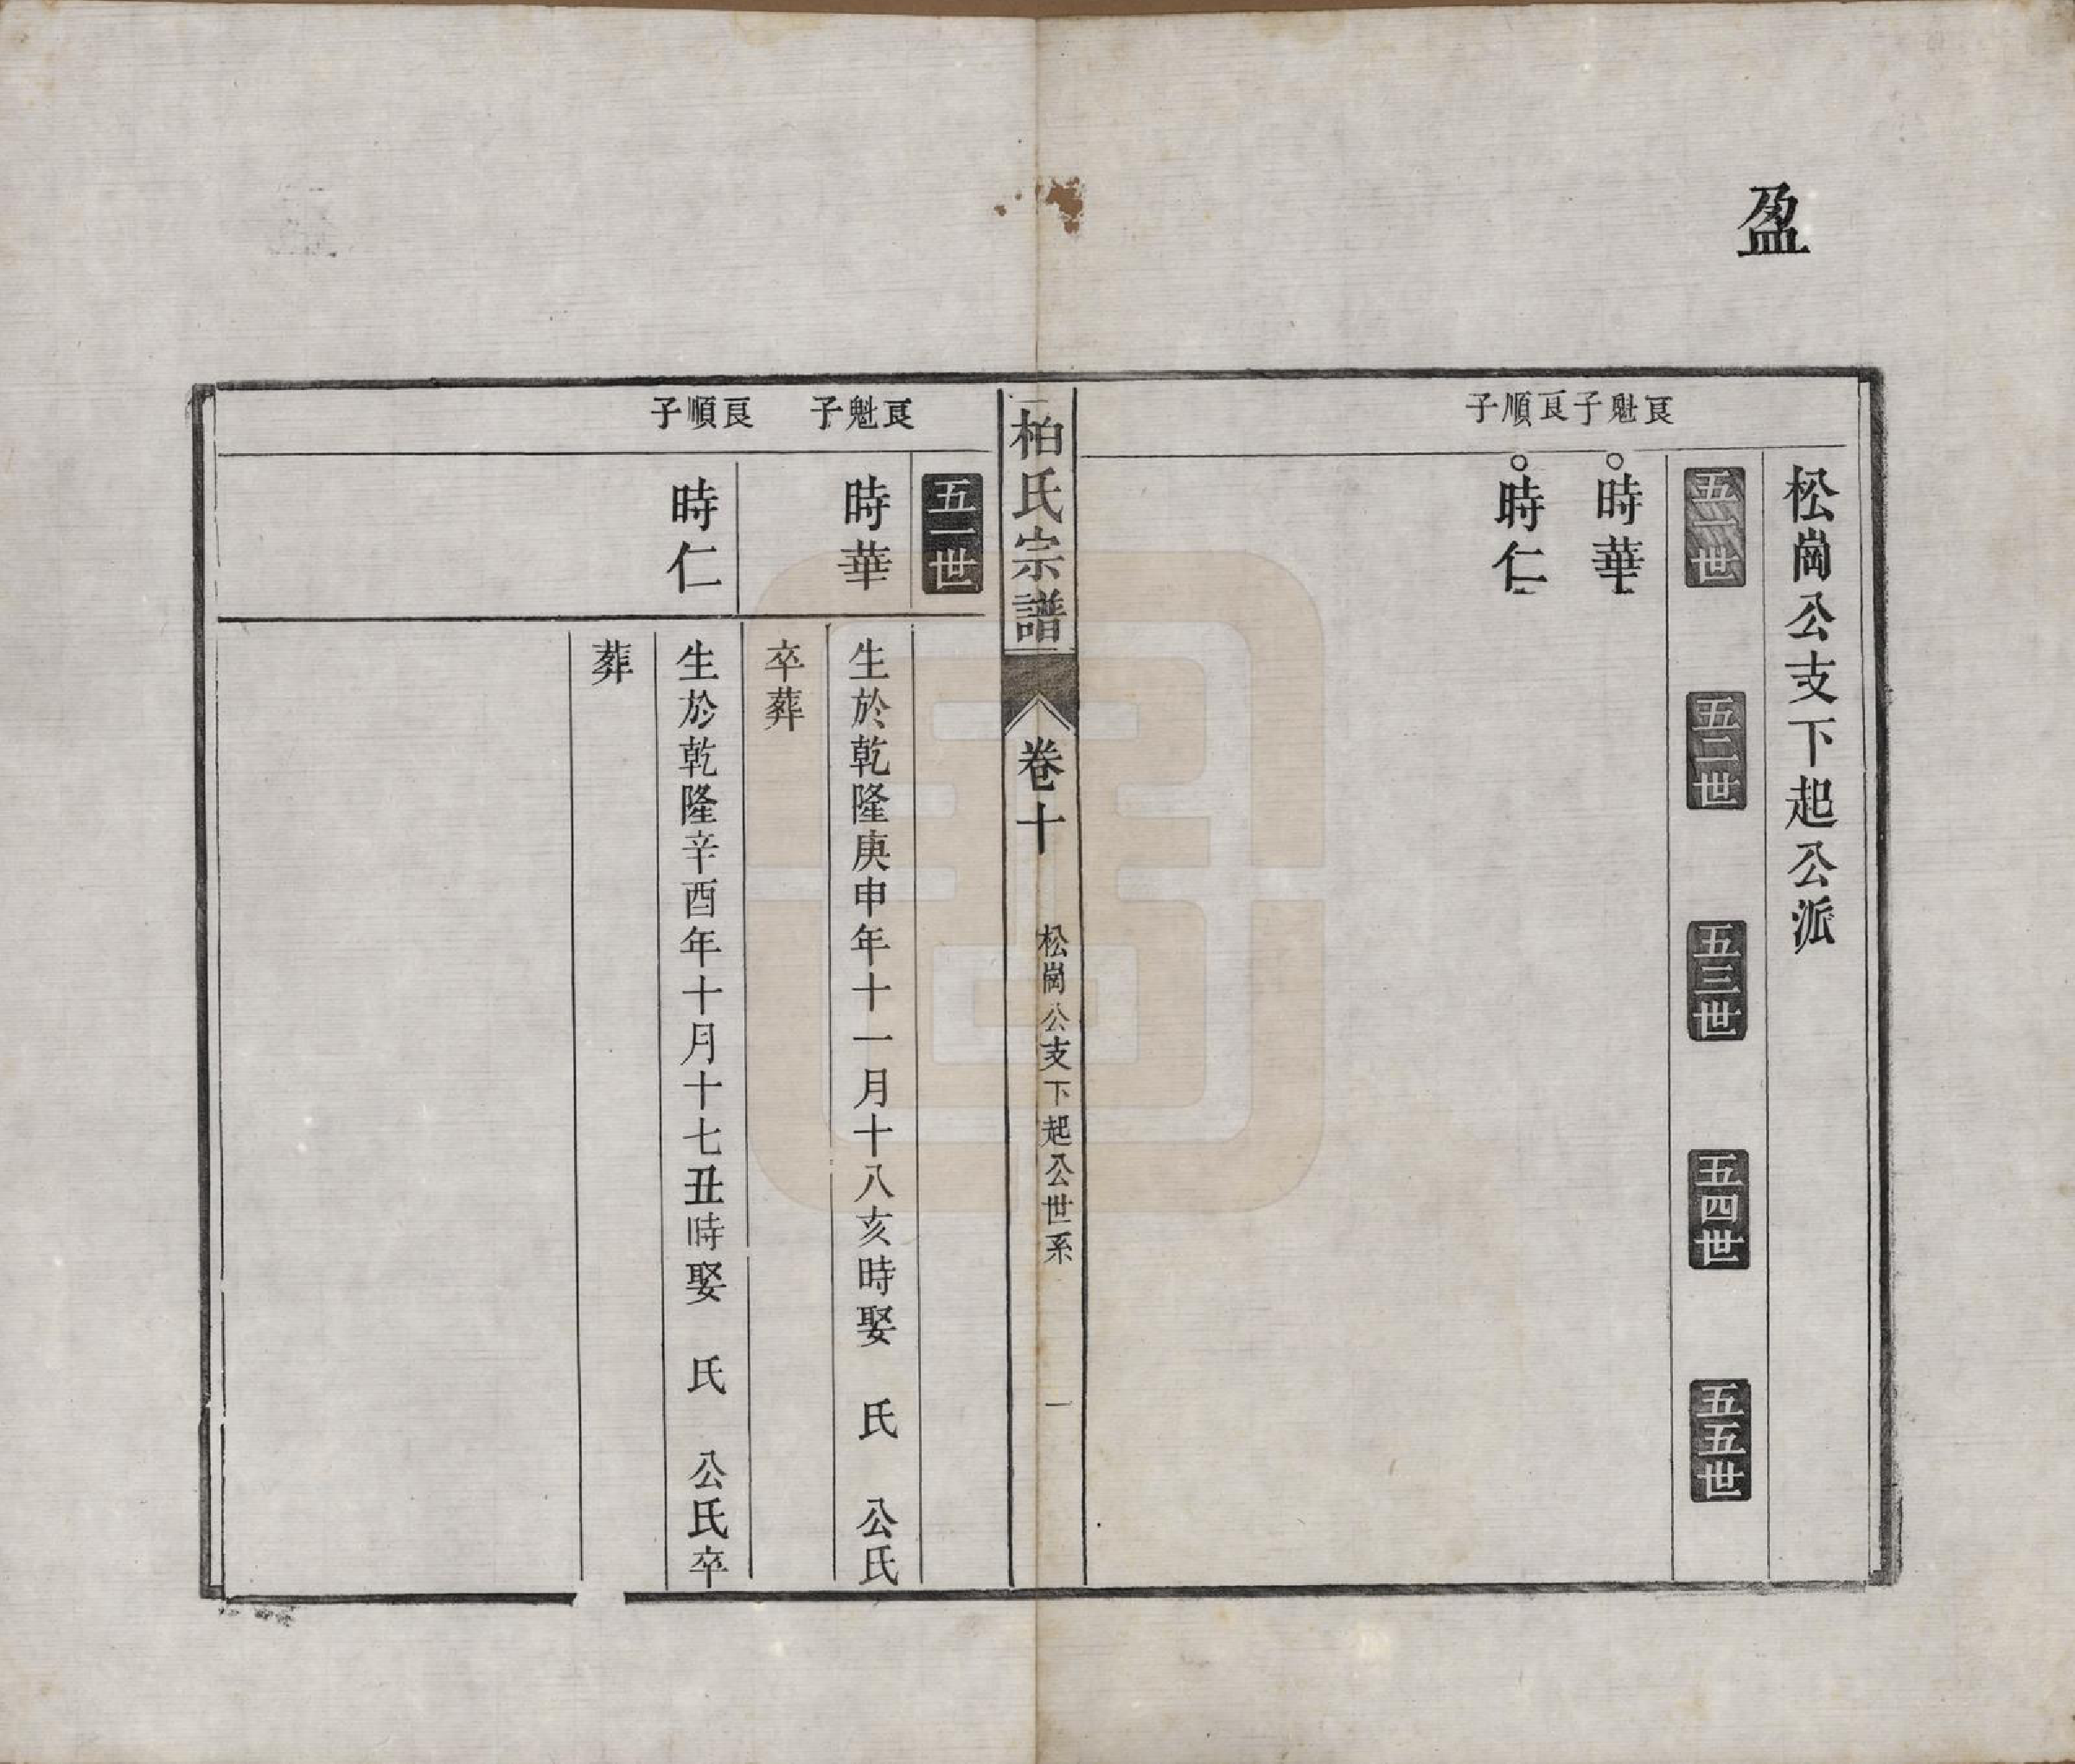 盈
松崗公支下起公派
五一世
五二世
五三世
五四世
五五世
良魁子
時華
良順子
時仁
柏氏宗譜
卷十
松崗公支下起公世系
一
五一世
良魁子
時華
生於乾隆庚申年十一月十八亥時娶 氏 公氏
卒葬
良順子
時仁
生於乾隆辛酉年十月十七丑時娶 氏 公氏卒
葬